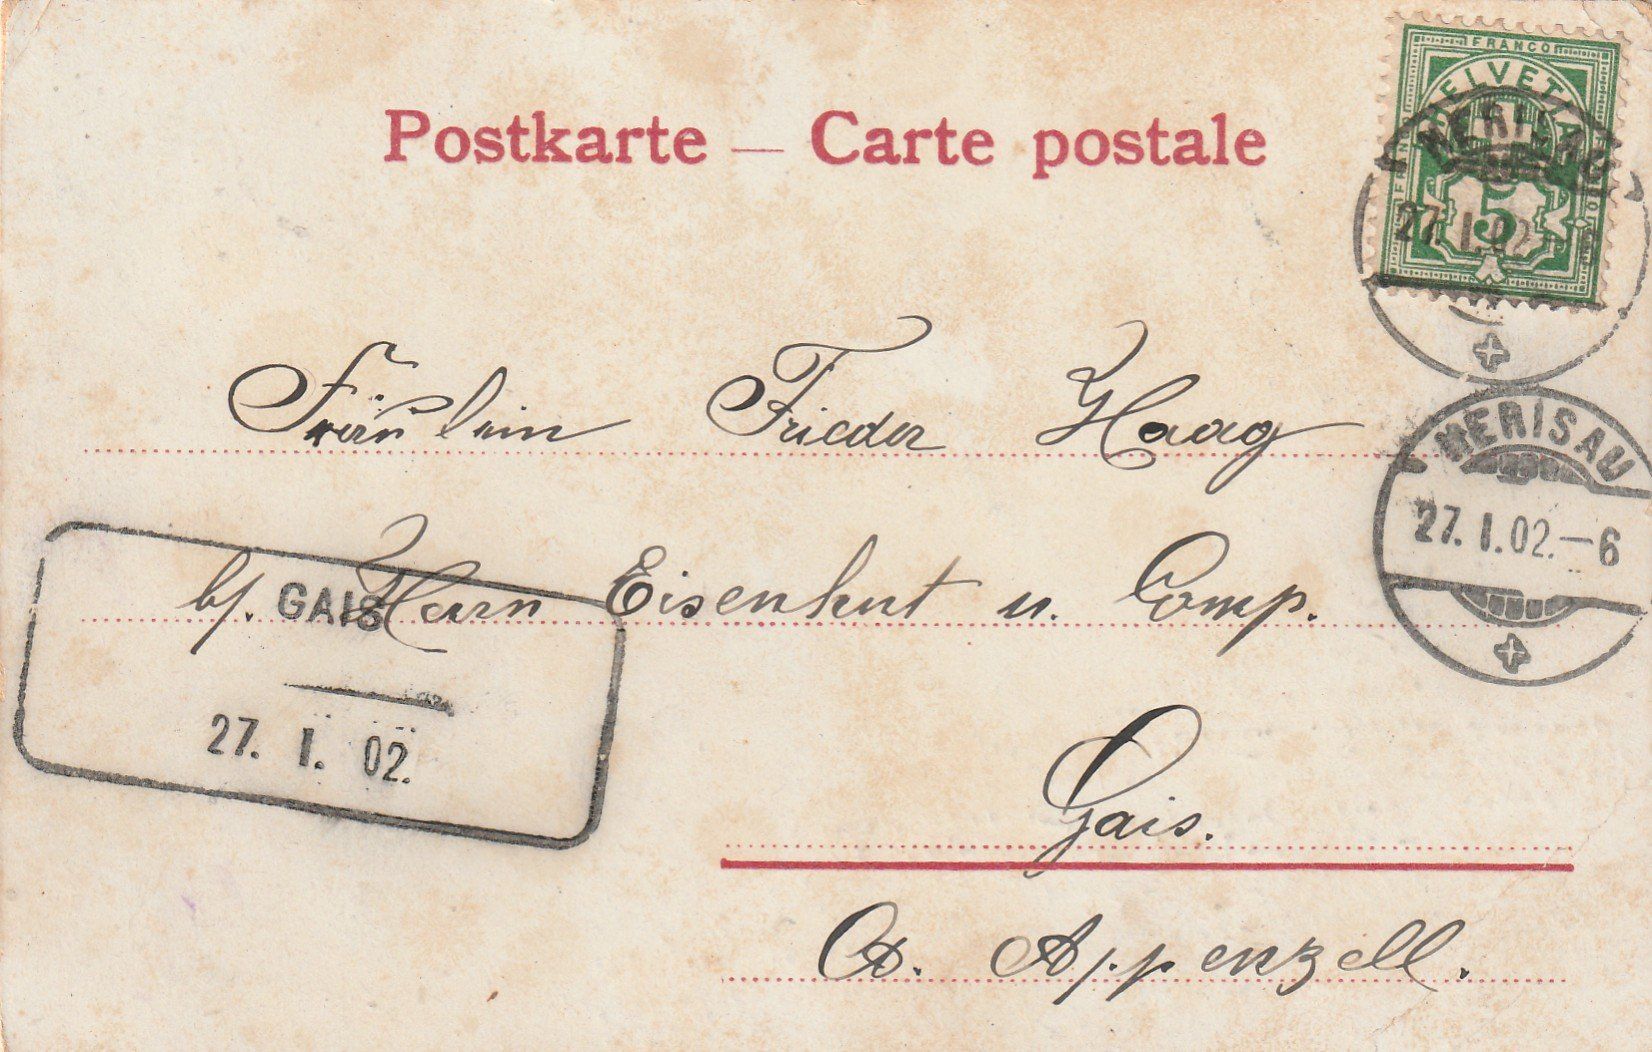 FRANCO
HELVETIA
5
HERISAU
27. I. 02.
Postkarte — Carte postale
Fräulein Frieda Haag
HERISAU
27. I. 02. — 6
b/. Herrn Eisenhut u. Comp.
GAIS
27. I. 02.
Gais.
Ct. Appenzell.